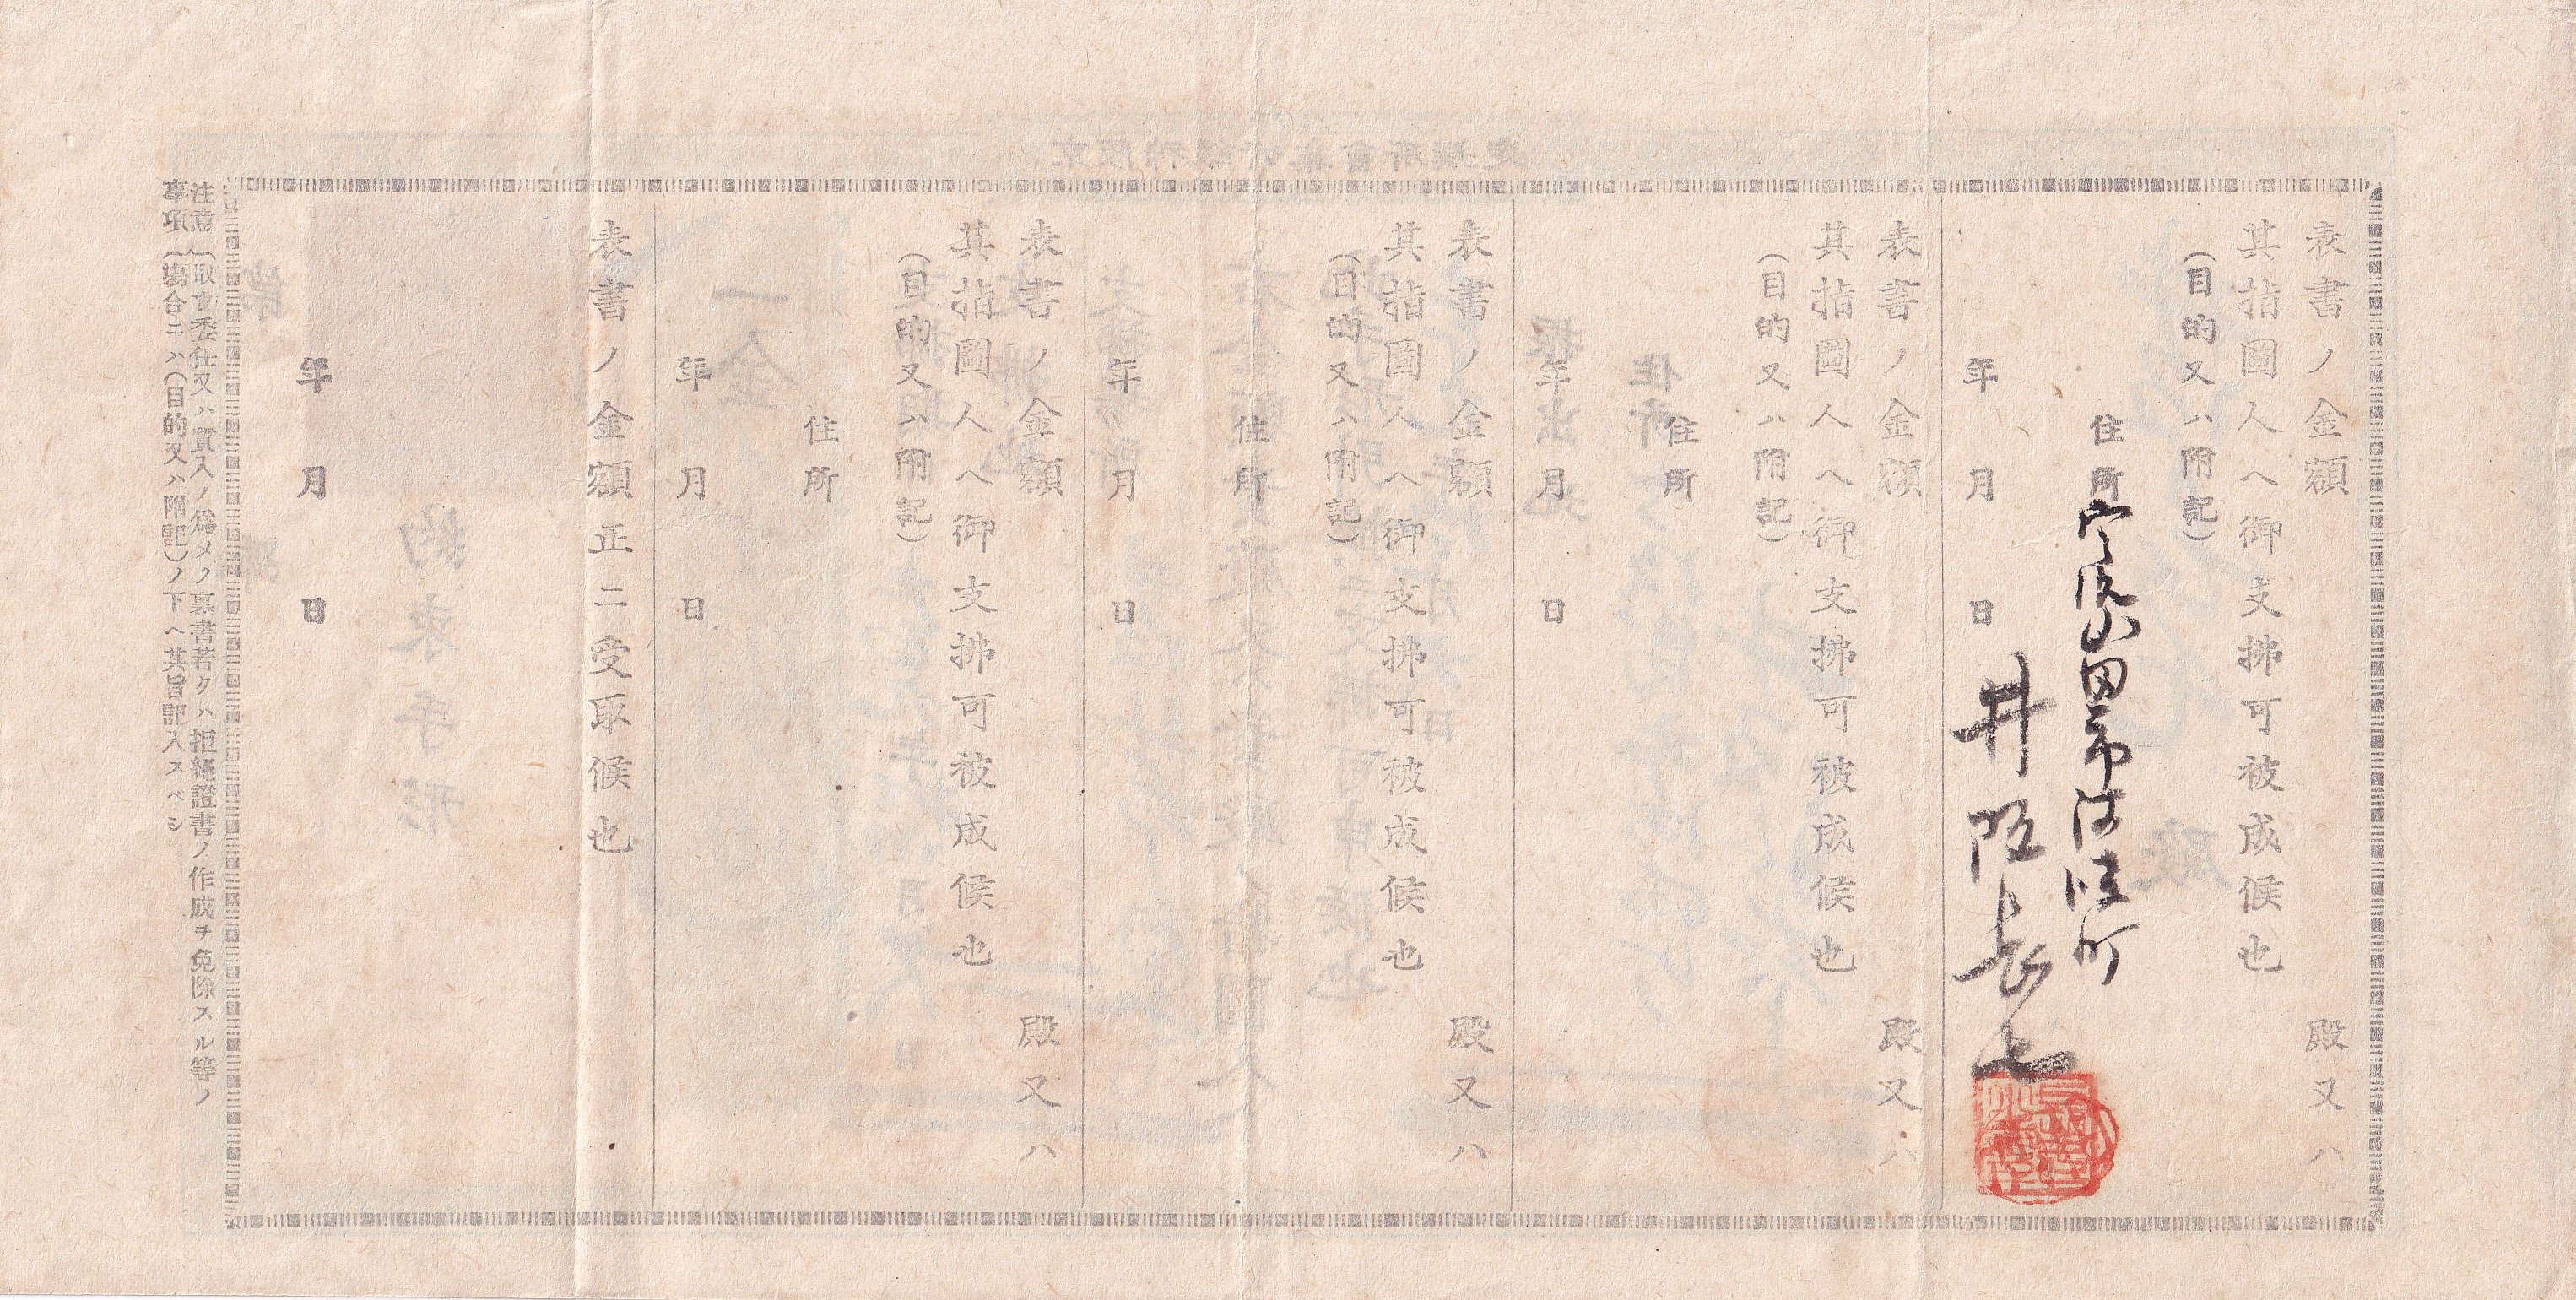 表書ノ金額 殿又ハ
其指圖人ヘ御支拂可被成候也
（目的又ハ附記）
住所 宇治山田市河崎町
年 月 日 井阪長七
表書ノ金額 殿又ハ
其指圖人ヘ御支拂可被成候也
（目的又ハ附記）
住所
年 月 日
表書ノ金額 殿又ハ
其指圖人ヘ御支拂可被成候也
（目的又ハ附記）
住所
年 月 日
表書ノ金額 殿又ハ
其指圖人ヘ御支拂可被成候也
（目的又ハ附記）
住所
年 月 日
表書ノ金額正ニ受取候也
年 月 日
注意（取立委任又ハ質入ノ爲メノ裏書若クハ拒絶證書ノ作成ヲ免除スル等ノ
事項（塲合ニハ（目的又ハ附記）ノ下ヘ其旨記入スベシ
約束手形